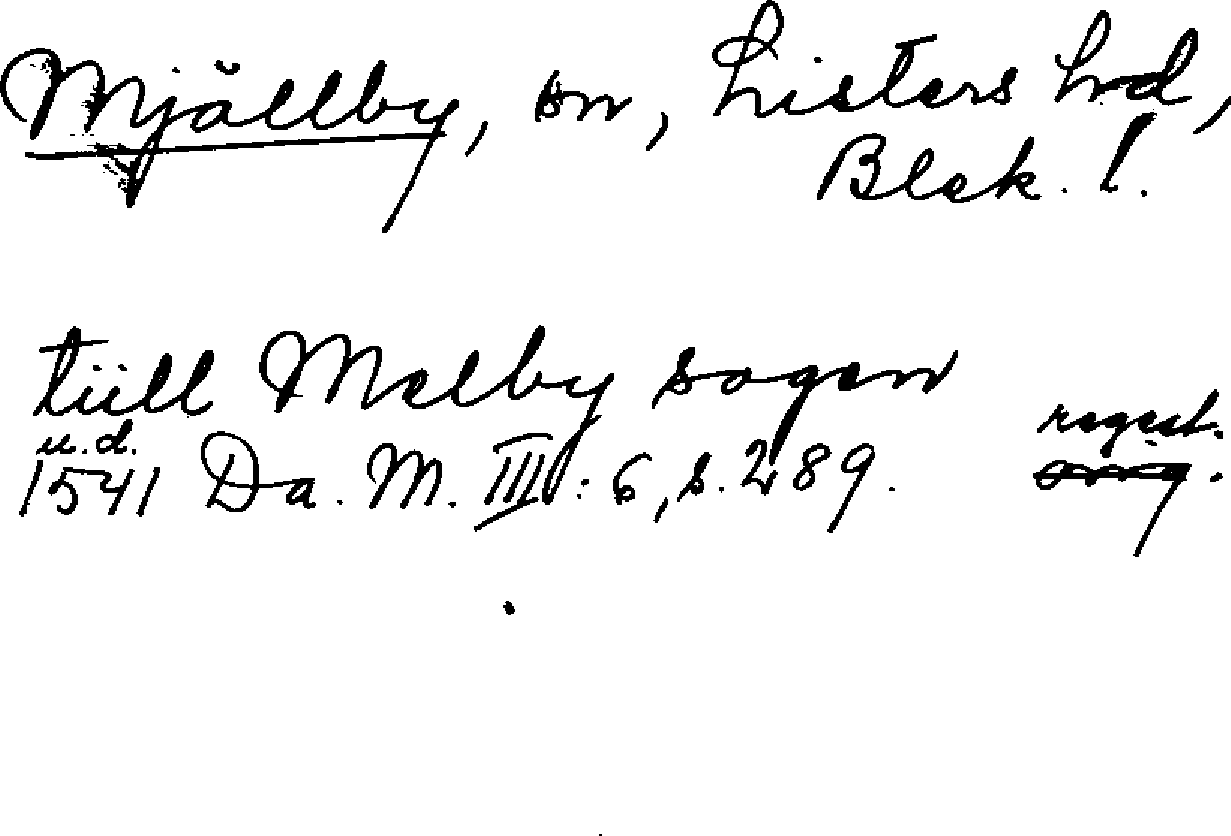 Mjällby, sn, Listers hd,
Blek. l.
tiill Melby sogen
u.d. regest.
1541 Da. M. III: 6, s. 289. orig.